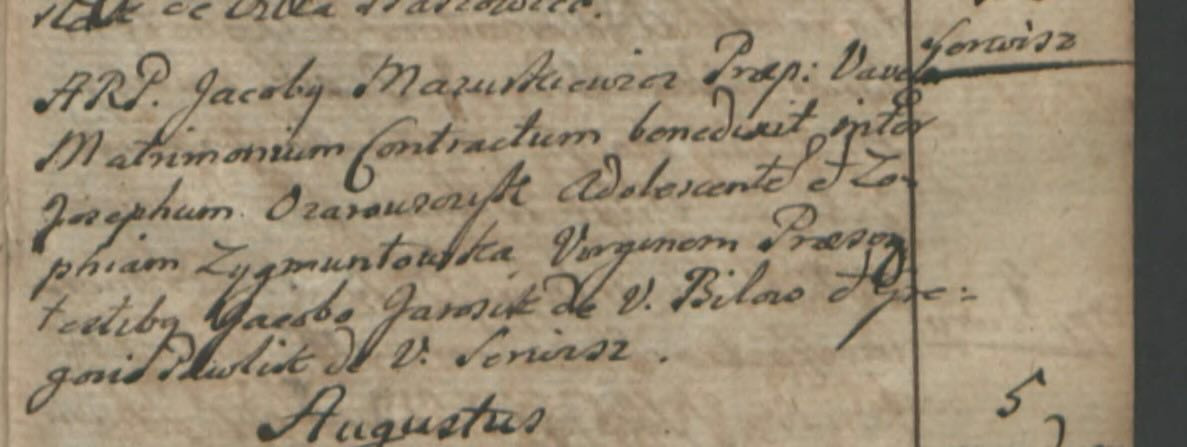 de Villa
Serwisz
ARP. Jacoby Mazurkiewicz Præp: Vavel
Matrimonium Contractum benedixit inter
Josephum Ozarowszczyk Adolescente et Zo-
phiam Zygmuntowska Virginem Præsen
testiby Jacobo Jarosik de V. Bilow et Gre:
gorio Pawlik de V. Serwisz.
Augustus
5